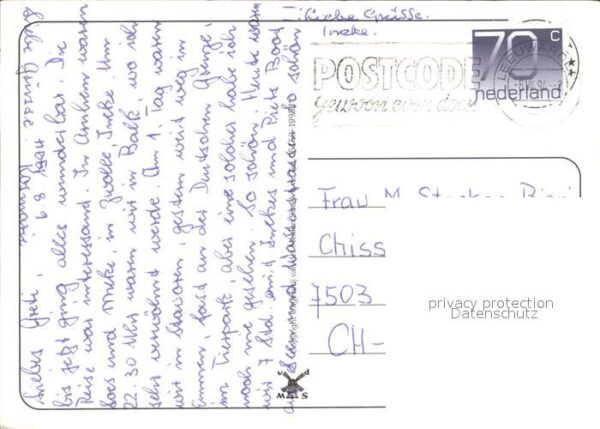 Liebes Greti, 6.8.1994
bis jetzt ging alles wunderbar. Die
Reise war interessand. In Arnhem waren
Loes und Mieke, in Zwolle Ineke. Um
22.30 Uhr waren wir in Balk, wo ich
sehr verwöhnt werde. Am 1. Tag waren
wir in Stavoren, gestern weit weg in
Emmen, fast an der Deutschen Grenze,
im Tierpark, aber eine solcher habe ich
noch nie gesehen. So schön. Heute waren
wir 7 Std. mit Inekes und Piets Boot
Seen und
so schön
Viele Grüsse.
Liebe Grüsse.
Ineke.
POSTCODE
gewoon even doen
70 c
nederland
LEEUWARDEN
Frau M.
Chiss
7503
CH-
privacy protection
Datenschutz